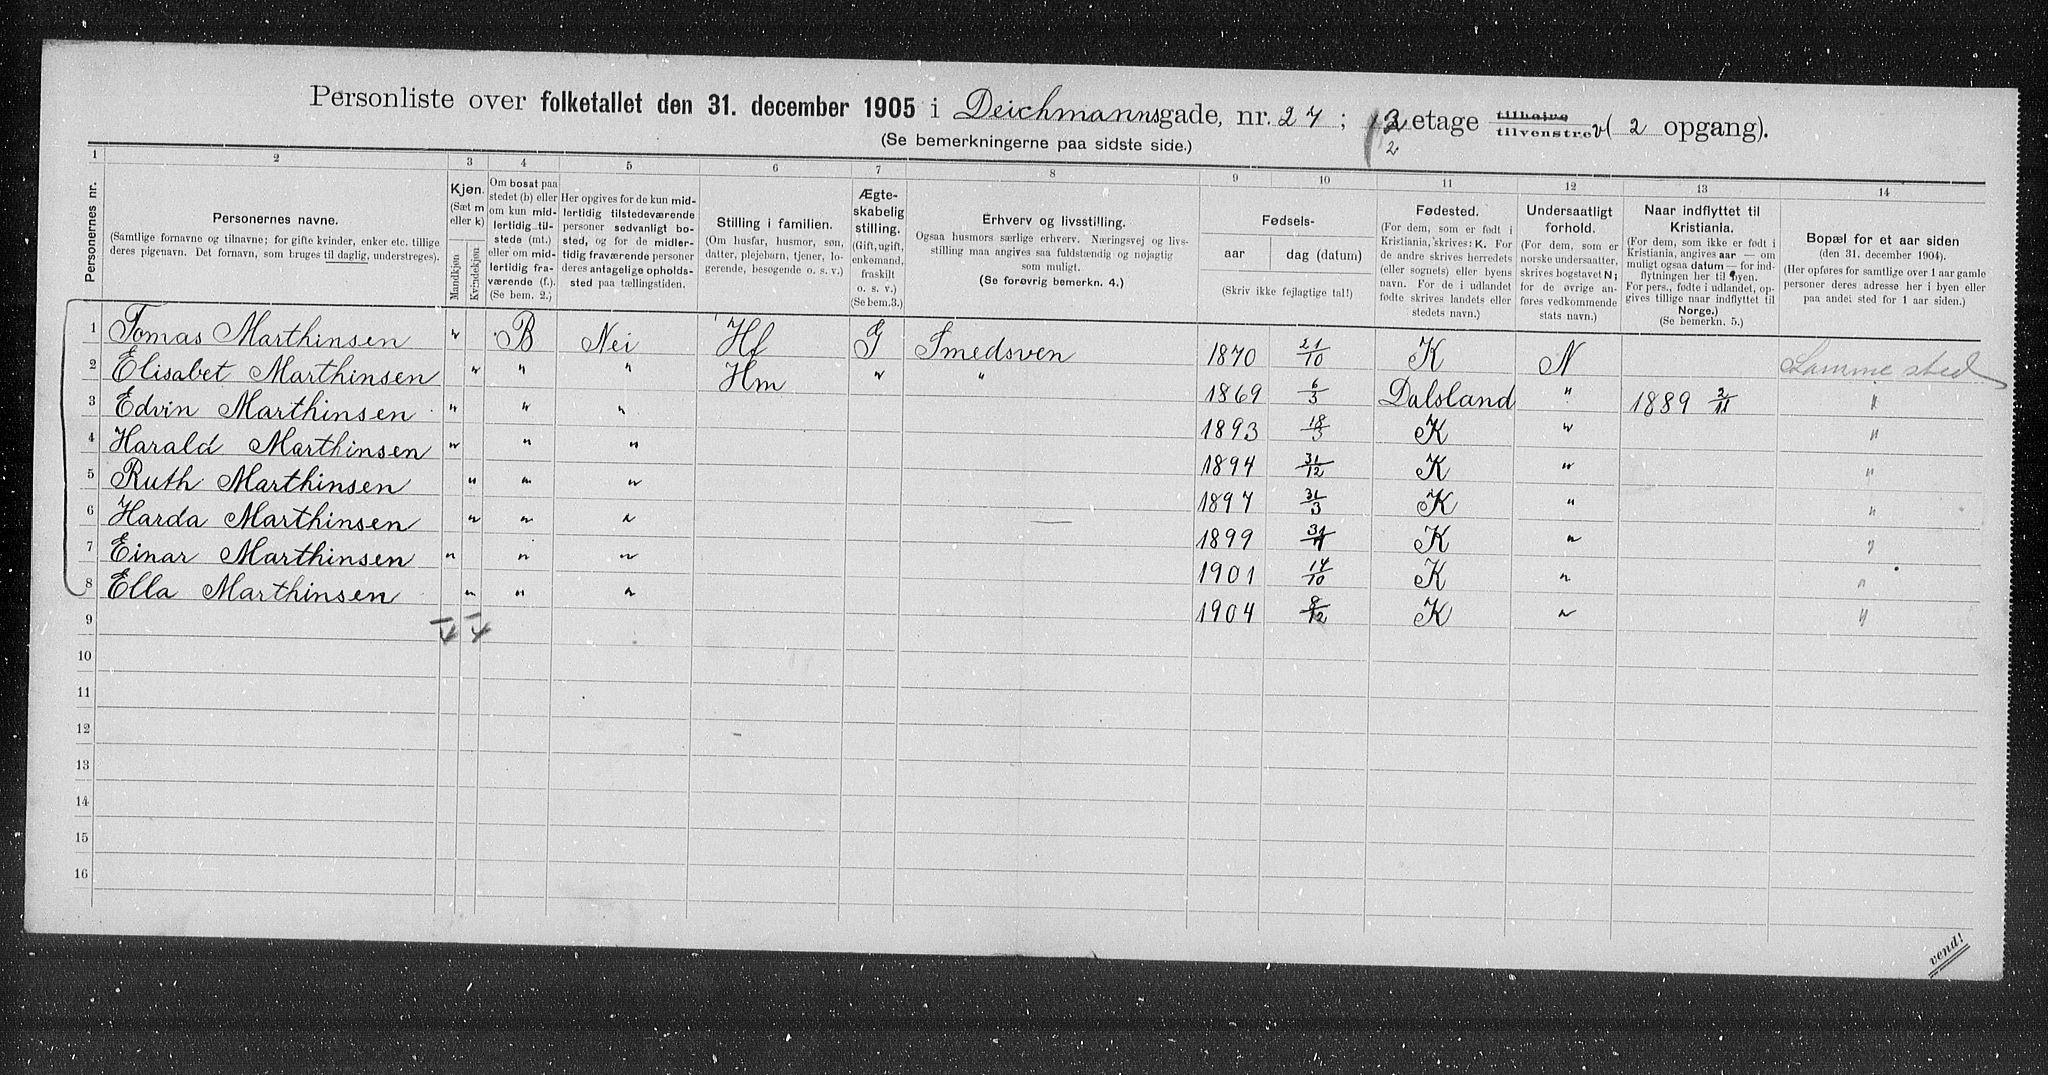 Personliste over folketallet den 31. december 1905 i Deichmannsgade, nr. 27; 2 etage tilhøire tilvenstre v (2 opgang).
(Se bemerkningerne paa sidste side.)
1 2 3 4 5 6 7 8 9 10 11 12 13 14
Personernes nr.
Personernes navne.
(Samtlige fornavne og tilnavne; for gifte kvinder, enker etc. tillige deres pigenavn. Det fornavn, som bruges til daglig, understreges).
Kjøn. (Sæt m eller k)
Mandkjøn
Kvindekjøn
Om bosat paa stedet (b) eller om kun midlertidig tilstede (mt.) eller om midlertidig fraværende (f.). (Se bem. 2.)
Her opgives for de kun midlertidig tilstedeværende personer sedvanligt bosted, og for de midlertidig fraværende personer deres antagelige opholdssted paa tællingstiden.
Stilling i familien.
(Om husfar, husmor, søn, datter, plejebarn, tjener, logerende, besøgende o. s. v.)
Ægteskabelig stilling.
(Gift, ugift, enkemand, fraskilt o. s. v.) (Se bem. 3.)
Erhverv og livsstilling.
Ogsaa husmors særlige erhverv. Næringsvej og livsstilling maa angives saa fuldstændig og nøjagtig som muligt.
(Se forøvrig bemerkn. 4.)
Fødsels-
aar
dag (datum)
(Skriv ikke fejlagtige tal!)
Fødested.
(For dem, som er født i Kristiania, skrives: K. For de andre skrives herredets (eller sognets) eller byens navn. For de i udlandet fødte skrives landets eller stedets navn.)
Undersaatligt forhold.
(For dem, som er norske undersaatter, skrives bogstavet N; for de øvrige anføres vedkommende stats navn.)
Naar indflyttet til Kristiania.
(For dem, som ikke er født i Kristiania, angives aar — om muligt ogsaa datum — for indflytningen her til byen. For pers., fødte i udlandet, opgives tillige naar indflyttet til Norge.) (Se bemerkn. 5.)
Bopæl for et aar siden (den 31. december 1904).
(Her opføres for samtlige over 1 aar gamle personer deres adresse her i byen eller paa andet sted for 1 aar siden.)
1 Tomas Marthinsen " B Nei Hf G Smedsven 1870 21/10 K N Samme sted
2 Elisabet Marthinsen " " " Hm " " 1869 6/3 Dalsland " 1889 2/11 "
3 Edvin Marthinsen " " " 1893 18/3 K " "
4 Harald Marthinsen " " " 1894 31/12 K " "
5 Ruth Marthinsen " " " 1897 31/3 K " "
6 Harda Marthinsen " " " 1899 K " "
7 Einar Marthinsen " " " 1901 14/10 K " "
8 Ella Marthinsen " " " 1904 9/12 K " "
9 4 4
10
11
12
13
14
15
16
vend!